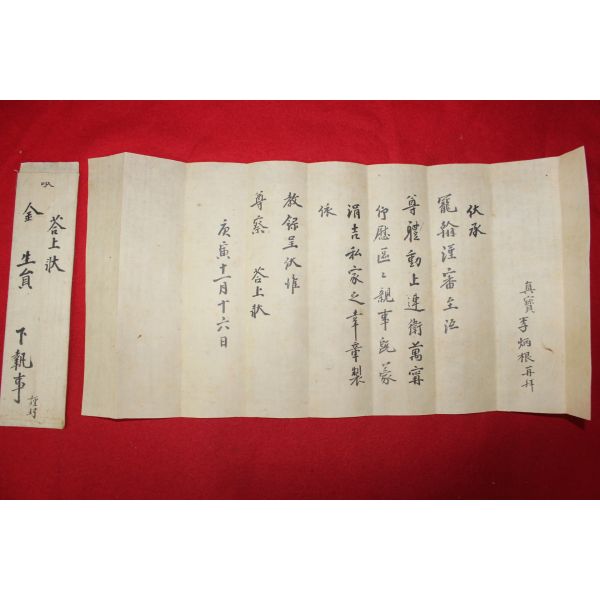 真寶李炳根再拜
伏承
寵翰謹審至沍
尊體動止連衛萬甯
仰慰區〻親事旣蒙
涓吉私家之幸章製
依
教錄呈伏惟
尊察 答上狀
庚寅十一月十六日
答上狀
金 生員 下執事
謹封